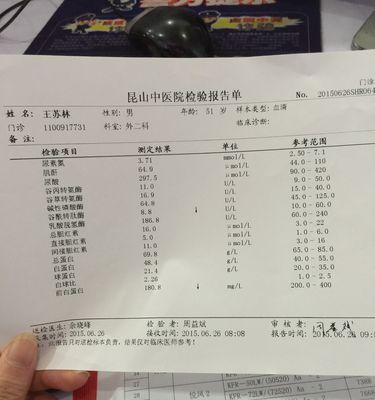 昆山中医院检验报告单
门诊
No. 20150626SHR064
姓名: 王苏林 性别: 男 年龄: 51 岁 样本类型: 血清
门诊 1100917731 科室: 外二科 临床诊断:
备注:
检验项目 测定结果 单位 参考范围
尿素氮 3.71 mmol/L 2.50 - 7.1
肌酐 64.9 μmol/L 44.0 - 110
尿酸 297.5 μmol/L 90.0 - 420
谷丙转氨酶 11.0 U/L 9.0 - 50.0
谷草转氨酶 16.9 U/L 15.0 - 40.0
碱性磷酸酶 64.8 U/L 45.0 - 125.0
谷酰转肽酶 8.8 ↓ U/L 10.0 - 60.0
乳酸脱氢酶 186.8 U/L 60.0 - 240
总胆红素 16.0 μmol/L 3.0 - 22
直接胆红素 5.0 μmol/L 1.0 - 6.0
间接胆红素 11.0 μmol/L 3.0 - 16
总蛋白 69.8 g/L 65.0 - 85.0
白蛋白 48.4 g/L 40.0 - 55.0
球蛋白 21.4 g/L 20.0 - 35.0
白球比 2.26 1.0 - 2.5
前白蛋白 180.8 ↓ mg/L 200.0 - 400
送检医生: 余晓峰 检验者: 周益斌 审核者:
采集时间: 2015.06.26 接收时间: 2015.06.26 08:08 报告时间: 2015.06.26 09:
此报告只对送检标本负责, 结果仅对临床医师参考!